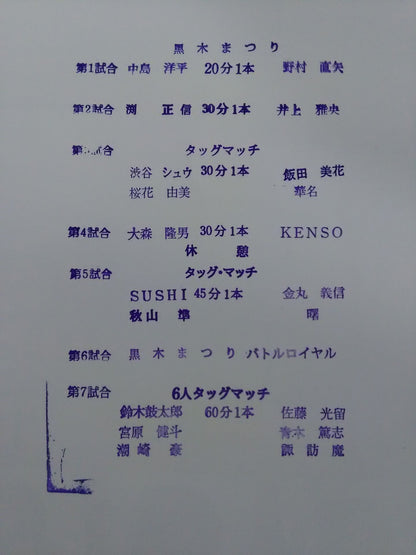 黒木まつり
第1試合 中島 洋平 20分1本 野村 直矢
第2試合 渕 正信 30分1本 井上 雅央
第3試合 タッグマッチ
渋谷 シュウ 30分1本 飯田 美花
桜花 由美 華名
第4試合 大森 隆男 30分1本 KENSO
休憩
第5試合 タッグ・マッチ
SUSHI 45分1本 金丸 義信
秋山 準 曙
第6試合 黒木まつりバトルロイヤル
第7試合 6人タッグマッチ
鈴木鼓太郎 60分1本 佐藤 光留
宮原 健斗 青木 篤志
潮崎 豪 諏訪魔